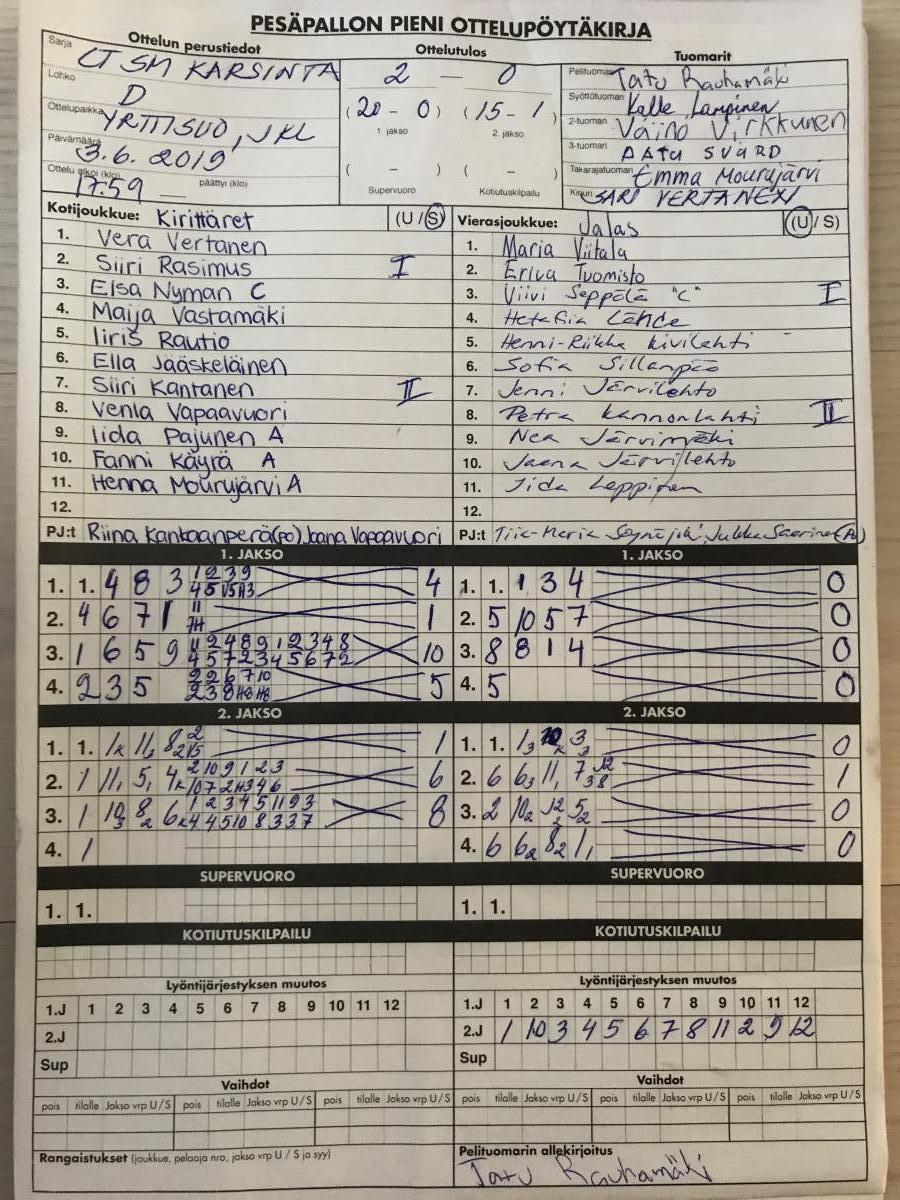 PESÄPALLON PIENI OTTELUPÖYTÄKIRJA
Ottelun perustiedot
Sarja LT SM KARSINTA
Lohko D
Ottelupaikka YRTTISUO, JKL
Päivämäärä 3.6.2019
Ottelu alkoi (klo) 17.59 päättyi (klo)
Ottelutulos
2 – 0
(20 - 0) (15 - 1)
1. jakso 2. jakso
( - ) ( - )
Supervuoro Kotiutuskilpailu
Tuomarit
Pelituomari Tatu Rauhamäki
Syöttötuomari Kalle Lampinen
2-tuomari Väinö Virkkunen
3-tuomari AATU SVÄRD
Takarajatuomari Emma Mourujärvi
Kirjuri SARI VERTANEN
Kotijoukkue: Kirittäret (U/S)
1. Vera Vertanen
2. Siiri Rasimus I
3. Elsa Nyman C
4. Maija Vastamäki
5. Iiris Rautio
6. Ella Jääskeläinen
7. Siiri Kantanen II
8. Venla Vapaavuori
9. Iida Pajunen A
10. Fanni Käyrä A
11. Henna Mourujärvi A
12.
PJ:t Riina Kankaanperä(PO) Jaana Vapaavuori
Vierasjoukkue: Jalas (U/S)
1. Maria Viitala
2. Erica Tuomisto
3. Viivi Seppälä "C" I
4. Lähde
5. Henni-Riikka Kivilahti
6. Sofia Sillanpää
7. Jenni Järvilehto
8. Petra Kannonlahti II
9. Nea Järvimäki
10. Jaana Järvilehto
11. Iida Leppinen
12.
PJ:t Tiia-Maria Jukka Saarinen (A)
1. JAKSO
1. 1. 4 8 3 4
2. 4 6 7 1 1
3. 1 6 5 9 10
4. 2 3 5 5
1. JAKSO
1. 1. 1 3 4 0
2. 5 10 5 7 0
3. 8 8 1 4 0
4. 5 0
2. JAKSO
1. 1. 1
2. 1 6
3. 1 8
4. 1
2. JAKSO
1. 1. 0
2. 6 1
3. 2 0
4. 6 0
SUPERVUORO
1. 1.
SUPERVUORO
1. 1.
KOTIUTUSKILPAILU
KOTIUTUSKILPAILU
Lyöntijärjestyksen muutos
1.J 1 2 3 4 5 6 7 8 9 10 11 12
2.J
Sup
Lyöntijärjestyksen muutos
1.J 1 2 3 4 5 6 7 8 9 10 11 12
2.J 1 10 3 4 5 6 7 8 11 2 9 12
Sup
Vaihdot
pois tilalle Jakso vrp U/S pois tilalle Jakso vrp U/S pois tilalle Jakso vrp U/S
Vaihdot
pois tilalle Jakso vrp U/S pois tilalle Jakso vrp U/S pois tilalle Jakso vrp U/S
Rangaistukset (joukkue, pelaaja nro, jakso vrp U / S ja syy)
Pelituomarin allekirjoitus
Tatu Rauhamäki